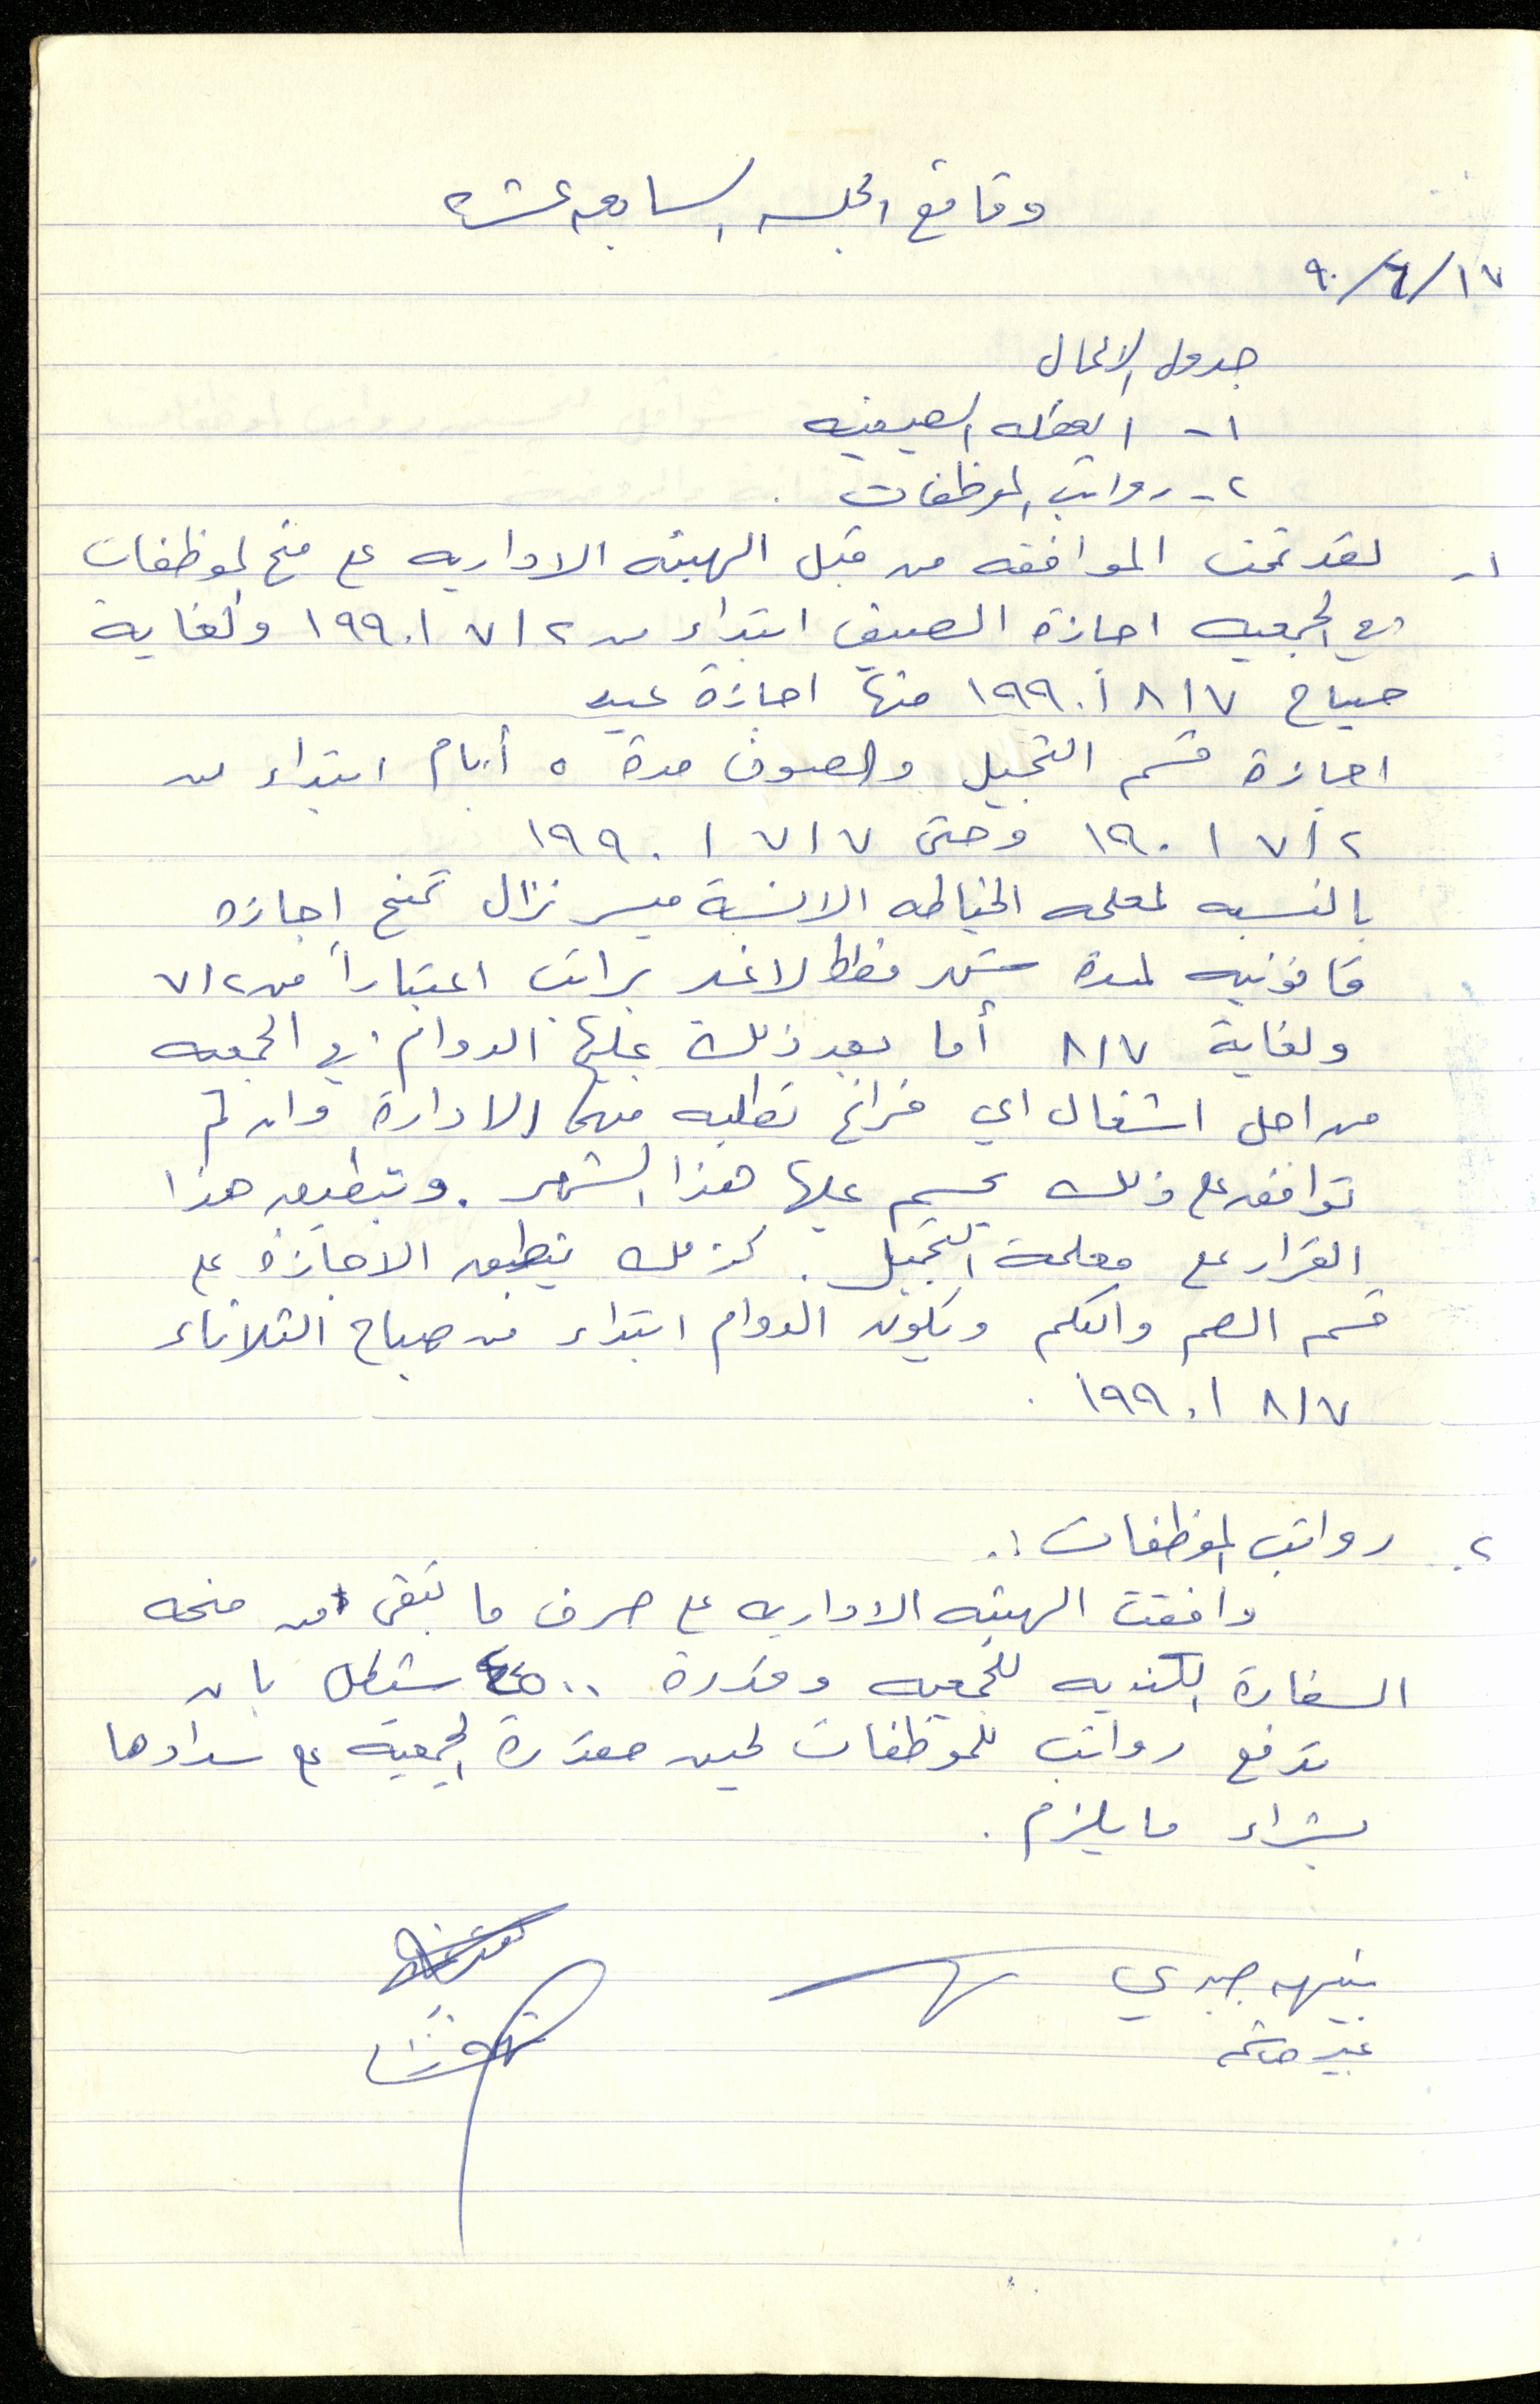 وقائع الجلسه السابعه عشره
١٧/٦/٩٠
جدول الاعمال
١- العطله الصيفيه
٢- رواتب الموظفات .
١- لقد تمت الموافقه من قبل الهيئه الاداريه على منح الموظفات
في الجمعيه اجازة الصيف ابتداء من ٢/٧/١٩٩٠ ولغاية
صباح ٧/٨/١٩٩٠ منها اجازة عيد
اجازة قسم التجميل والصوف مدة ٥ أيام ابتداء من
٢/٧/١٩٠ وحتى ٧/٧/١٩٩٠
بالنسبه لمعلمه الخياطه الانسة ميسر نزال تمنح اجازه
قانونيه لمدة شهر فقط لاغير براتب اعتباراً من ٢/٧
ولغاية ٧/٨ أما بعد ذلك عليها الدوام في الجمعيه
من اجل اشغال اي فراغ تطلبه منها الادارة وان لم
توافق على ذلك يحسم عليها هذا الشهر . وينطبق هذا
القرار على معلمة التجميل . كذلك ينطبق الاجازة على
قسم الصم والبكم ويكون الدوام ابتداء من صباح الثلاثاء
٧/٨/١٩٩٠ .
٢. رواتب الموظفات :.
وافقت الهيئه الاداريه على صرف ما تبقى من منحه
السفارة الكنديه للجمعيه وقدرة ٤٥٠٠ شيكل بان
تدفع رواتب للموظفات لحين مقدرة الجمعية على سدادها
بشراء ما يلزم .
نبيهه جبري
عبير حاتمه